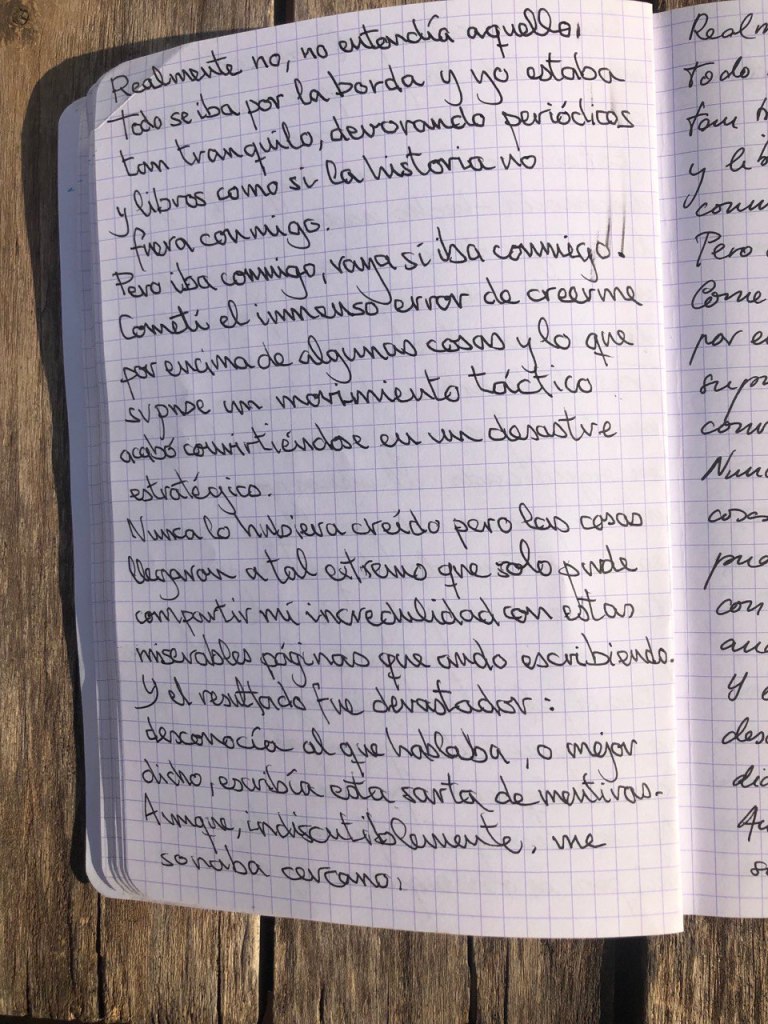 Realmente no, no entendía aquello,
Todo se iba por la borda y yo estaba
tan tranquilo, devorando periódicos
y libros como si la historia no
fuera conmigo.
Pero iba conmigo, vaya si iba conmigo.
Cometí el immenso error de creerme
por encima de algunas cosas y lo que
supuse un movimiento táctico
acabó convirtiéndose en un desastre
estratégico.
Nunca lo hubiera creído pero las cosas
llegaron a tal extremo que solo pude
compartir mi incredulidad con estas
miserables páginas que ando escribiendo.
Y el resultado fue devastador:
desconocía al que hablaba, o mejor
dicho, escribía esta sarta de mentiras.
Aunque, indiscutiblemente, me
sonaba cercano,
Todo
y
Pero
por
Y